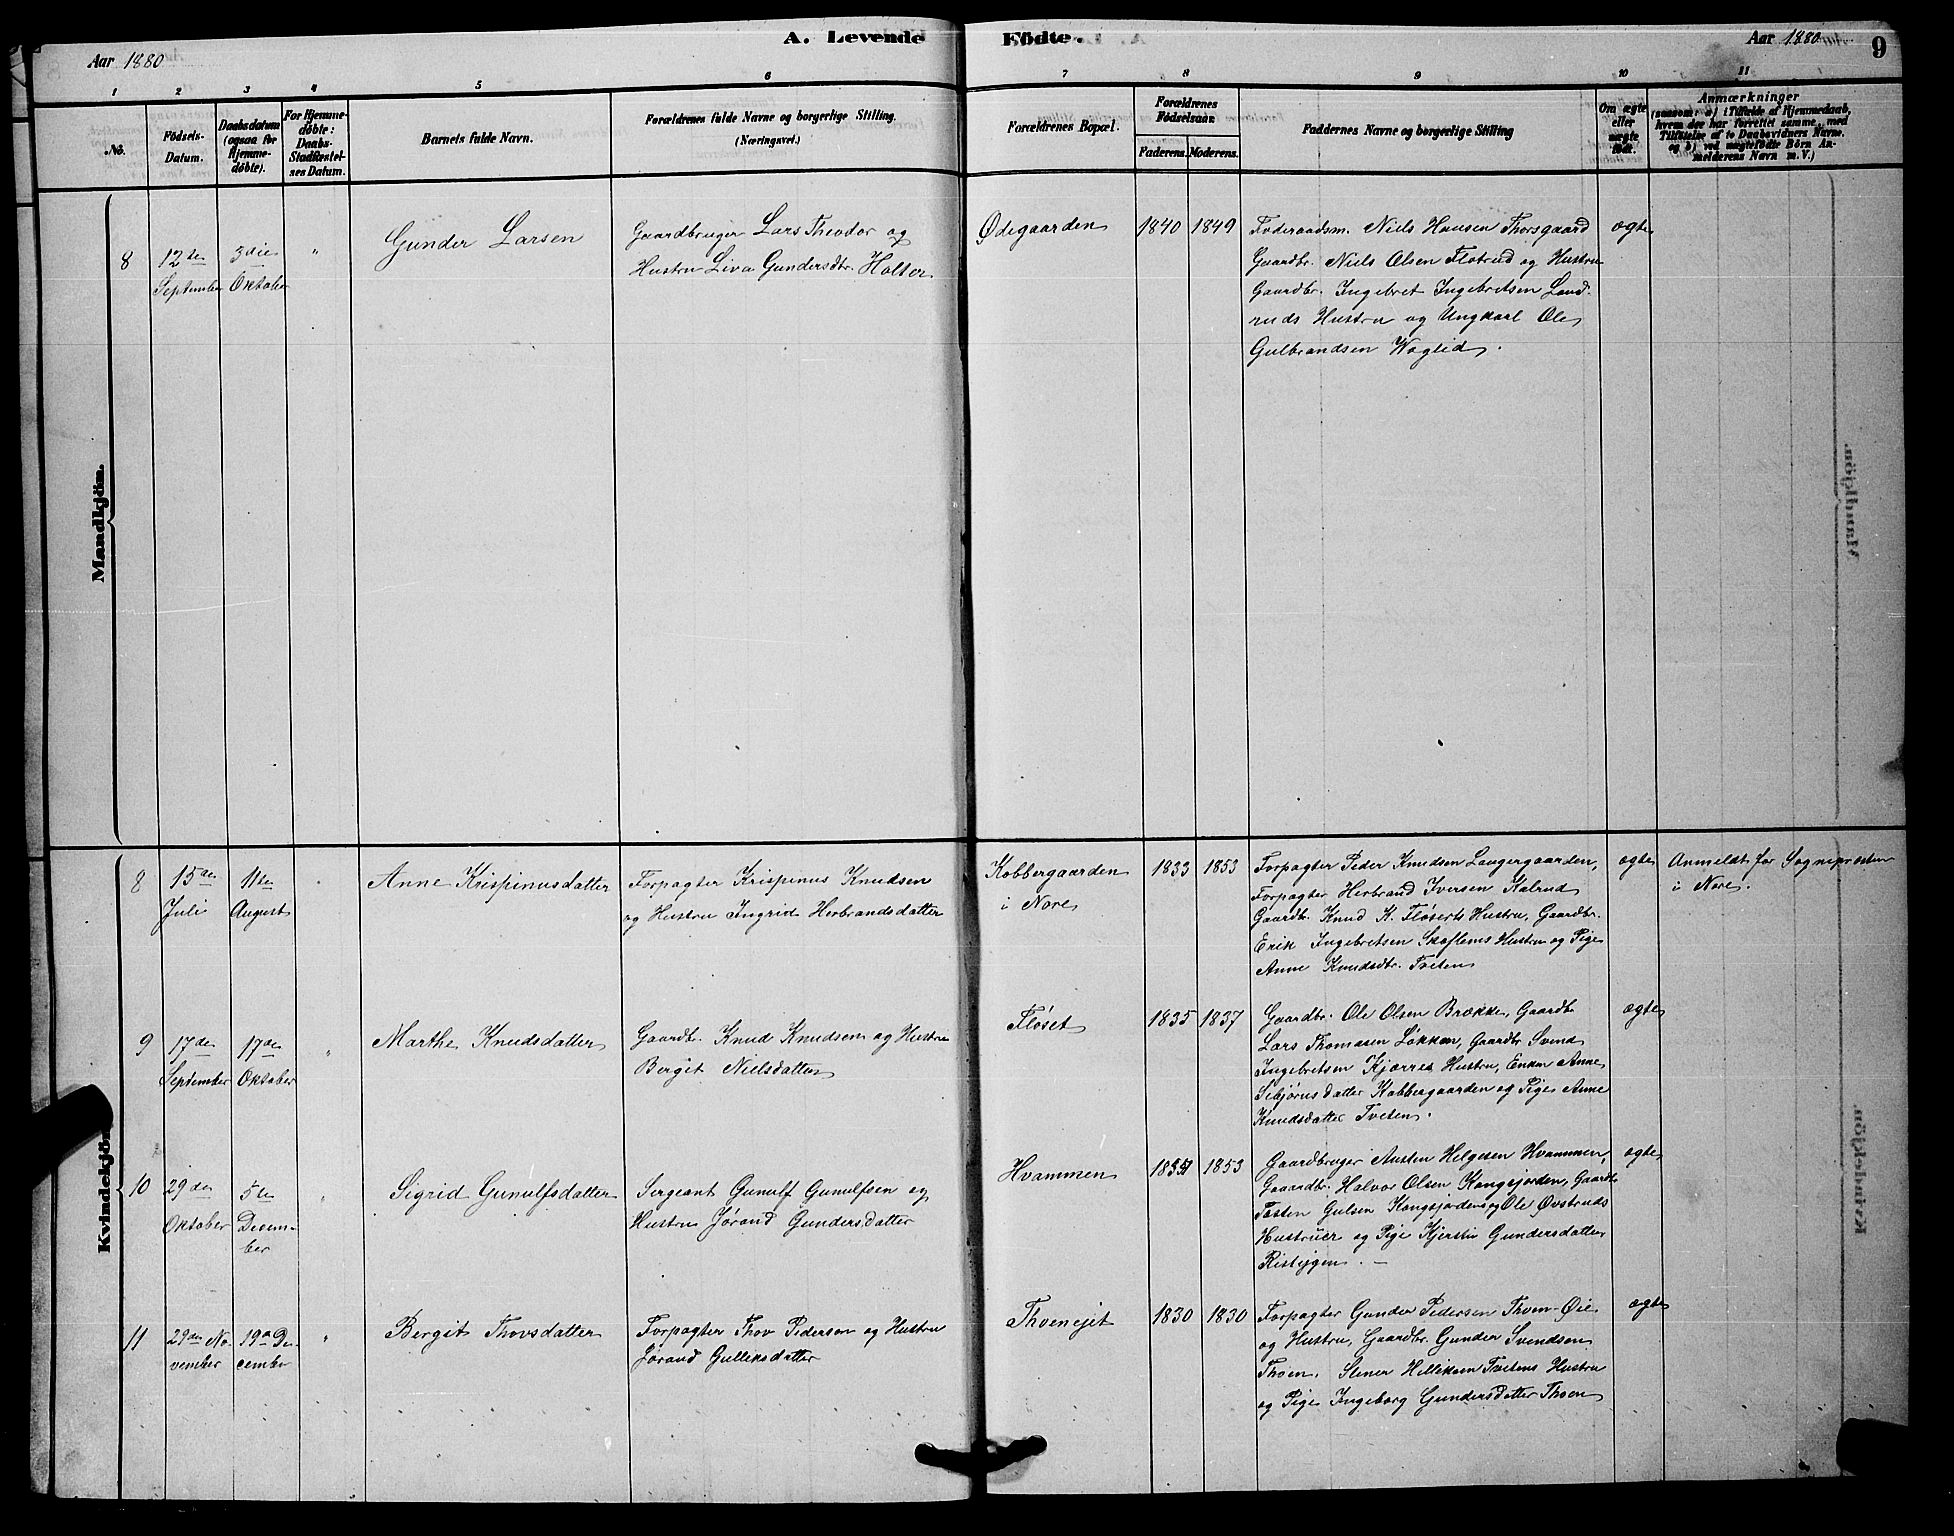 A. Levende Födte.
Aar 1880
Aar 1880
9
1 2 3 4 5 6 7 8 9 10 11
No.
Födsels-
Datum.
Daabsdatum
(ogsaa for
Hjemme-
döbte).
For Hjemme-
döbte:
Daabs-
Stadfæstel-
ses Datum.
Barnets fulde Navn.
Forældrenes fulde Navne og borgerlige Stilling.
(Næringsvei.)
Forældrenes Bopæl.
Forældrenes
Födselsaar.
Faderens. Moderens.
Faddernes Navne og borgerlige Stilling
Om ægte
eller
uægte
födt.
Anmærkninger
(saasom: a) i Tilfælde af Hjemmedaab,
hvem der har forrettet samme, med
Tilföielse af to Daabsvidners Navne,
og b) ved uægtefödte Börn An-
melderens Navn m. V.)
Mandkjön.
8
12te
September
3die
Oktober
"
Gunder Larsen
Gaardbruger Lars Theodor og
Hustru Liva Gundersdtr. Holter
Ødegaarden
1840 1849
Foderaadsm. Niels Hansen Thorsgaard
Gaardbr. Niels Olsen Flotrud og Hustru
Gaardbr. Ingebret Ingebretsen Land-
ruds Hustru og Ungkarl Ole
Gulbrandsen Waglid.
ægte
Kvindekjön.
8
15de
Juli
11te
August
"
Anne Krispinusdatter
Forpagter Krispinus Knudsen
og Hustru Ingrid Herbrandsdatter
Kobbergaarden
i Nore
1833 1853
Forpagter Peder Knudsen Langergaarden,
Forpagter Herbrand Iversen Kalrud
Gaardb. Knud K. Fløsets Hustru, Gaardbr.
Erik Ingebretsen Skoflems Hustru og Pige
Anne Knudsdtr. Tveten
ægte
Anmeldt for Sognepresten
i Nore.
9
17de
September
17de
Oktober
"
Marthe Knudsdatter
Gaardb. Knud Knudsen og Hustru
Bergit Nielsdatter
Fløset
1835 1837
Gaardbr. Ole Olsen Brække, Gaardb.
Lars Thomasen Løkken, Gaardbr Svend
Ingebretsen Kjærres Hustru, Enken Anne
Sebjørnsdatter Kobbergaarden og Pige Anne
Knudsdatter Tveten.
ægte
10
29de
Oktober
5te
Decem-
ber
"
Sigrid Gunulfsdatter
Sergeant Gunulf Gunulfsen og
Hustru Jørand Gundersdatter
Hvammen
1853
Gaardbruger Austen Helgesen Hvammen,
Gaardbr. Halvor Olsen Kongsjorden, Gaardb.
Tosten Gulsen Kongsjordens og Ole Øvstruds
Hustruer og Pige Kjersti Gundersdatter
Risteigen. —
ægte
11
29de No-
vember
19de De-
cember
"
Bergit Thovsdatter
Forpagter Thov Pedersen og Hustru
Jørand Gulliksdatter
Thoeneiet
1830 1830
Forpagter Gunder Pedersen Thoen-Øie
og Hustru, Gaardbr. Gunder Svendsen
Thoen, Stener Helliksen Tvetens Hustru
og Pige Ingeborg Gundersdatter Thoen
ægte